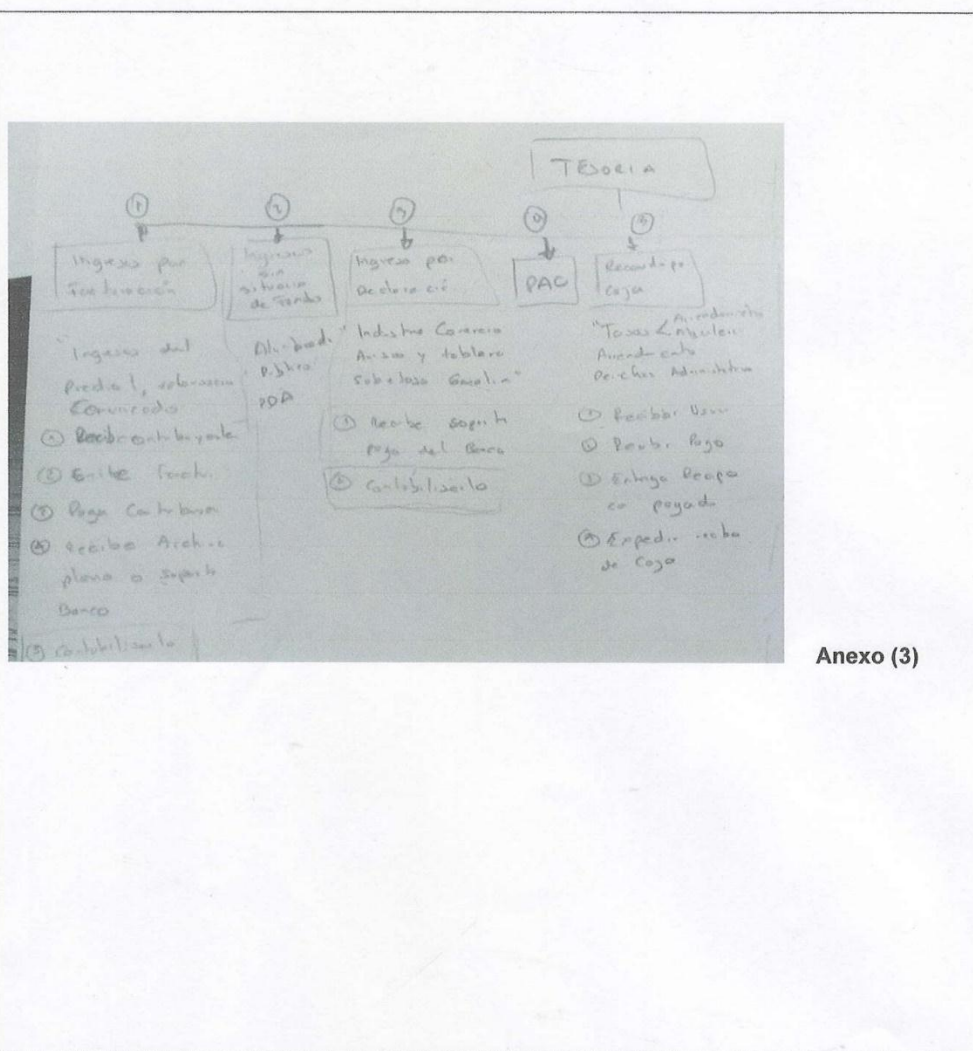 TESORIA
1
Ingresos por
Facturación
"Ingresos del
Predial, valorización
① Recibe contribuyente
②
③ Paga
④ Recibe
plano o soporte
Banco
⑤ Contabilizarlo
2
Ingresos
sin
situación
de Fondos
Alumbrado
Público
PDA
3
Ingreso por
Declaració
Industria Comercio
Avisos y tablero
Sobretasa Gasolina"
① Recibe soporte
pago del Banco
② Contabilizarlo
4
PAC
5
Recaudo po
Caja
"Tasas
Arrendamiento
Derechos Administrativo
① Recibir
② Recibir Pago
③ Entrega
pagado
④ Expedir recibo
de Caja
Anexo (3)